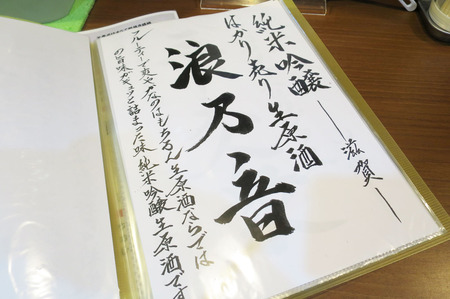 純米吟醸
はかり売り生原酒
―滋賀―
浪乃音
フルーティーで爽やかなのはもちろん生原酒ならでは
の旨味がぎゅっと詰まった味純米吟醸生原酒です